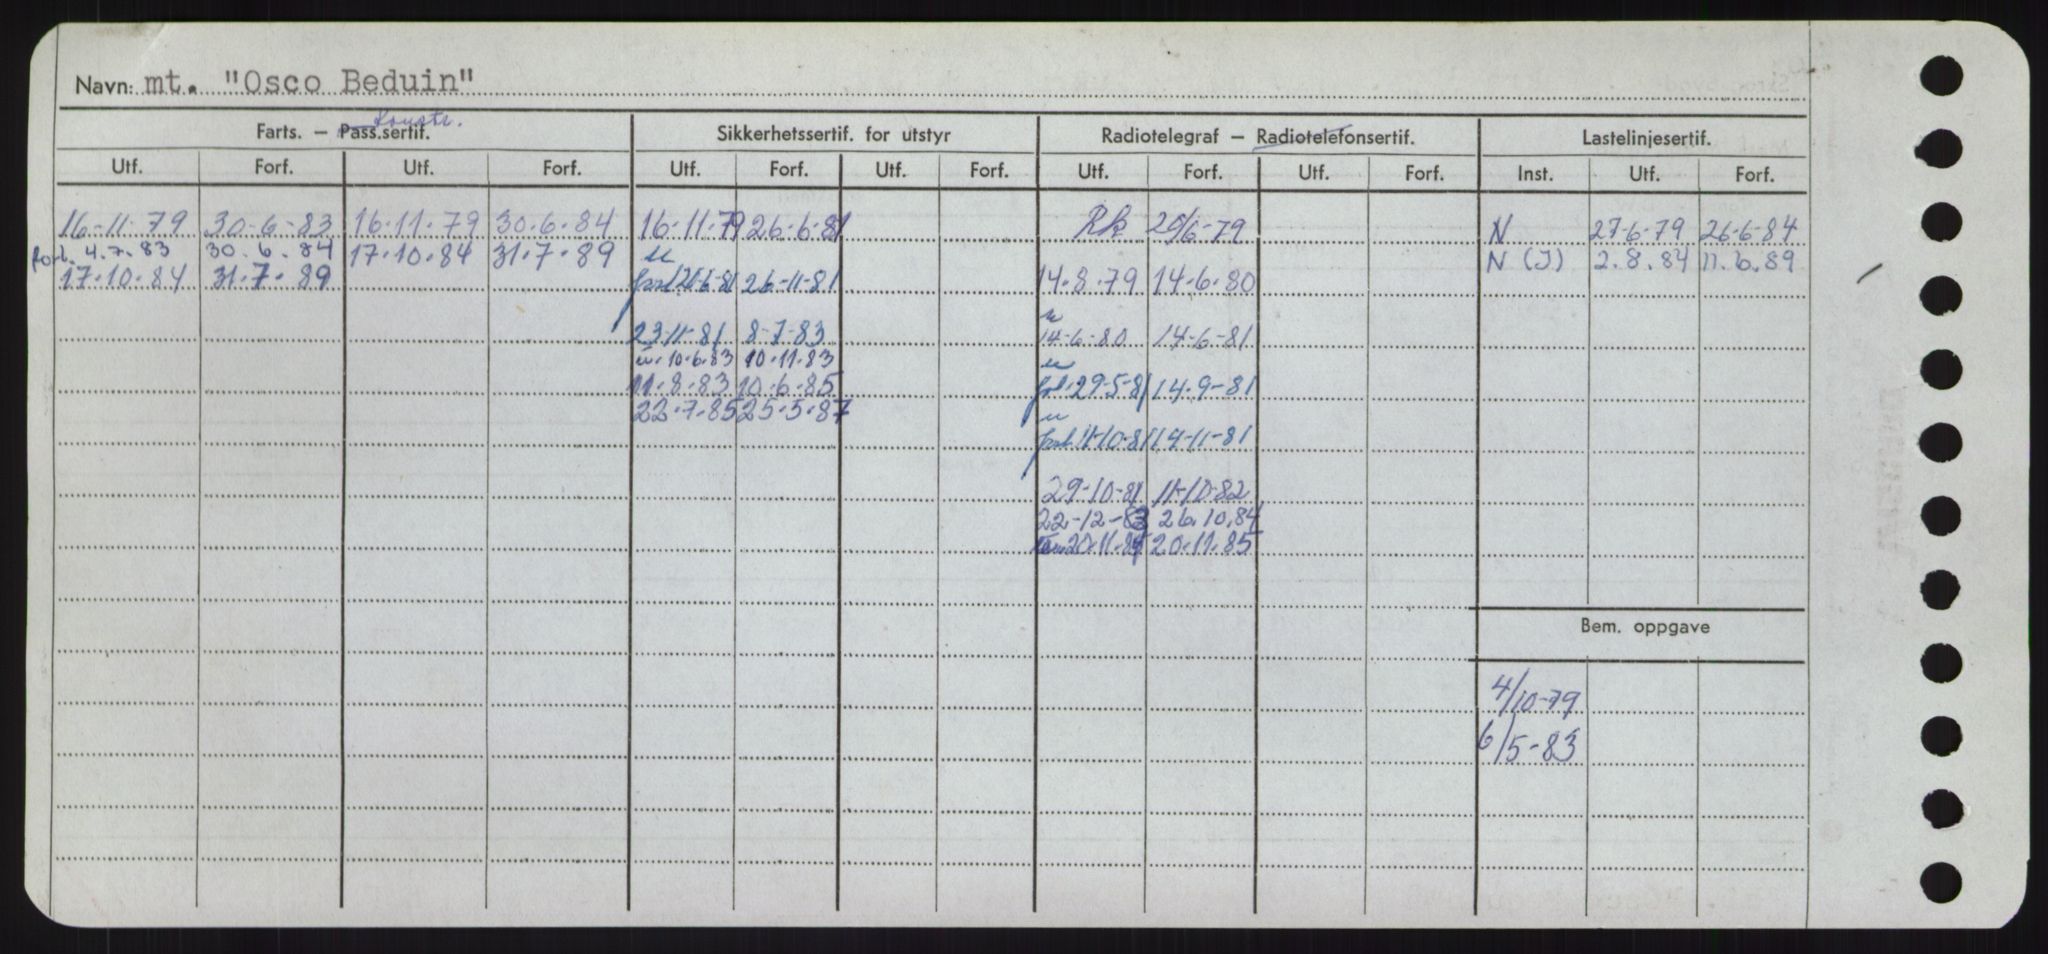 Navn: mt. "Osco Beduin"
Konstr.
Farts. — Pass.sertif. Sikkerhetssertif. for utstyr Radiotelegraf — Radiotelefonsertif. Lastelinjesertif.
Utf. Forf. Utf. Forf. Utf. Forf. Utf. Forf. Utf. Forf. Utf. Forf. Inst. Utf. Forf.
16-11-79 30-6-83 16.11.79 30.6.84 16-11-79 26-6-81 20/6-79 N 27-6-79 26-6-84
forl. 4.7.83 30.6.84 17.10.84 31.7.89 u N (J) 2.8.84 11.6.89
17.10.84 31.7.89 26-11-81 14.8.79 14-6-80
u
23-11-81 8-7-83 14-6-80 14-6-81
10.6.83 10.11.83 u
11.8.83 10.6.85 29-5-81 14-9-81
22.7.85 25.5.87 u
11-10-81 14-11-81
29-10-81 11-10-82
22-12-83 26.10.84
20.11.84 20.11.85
Bem. oppgave
4/10-79
6/5-83